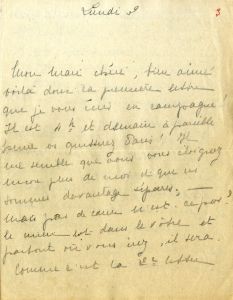 Lundi 9
3
Mon mari chéri, bien aimé
voilà donc la première lettre
que je vous écris en campagne!
Il est 4h et demain à pareille
heure vous quittez Paris! Il
me semble que vous vous éloignez
encore plus de moi et que nous
sommes davantage séparés, —
mais pas de cœur n'est-ce pas?
le mien est dans le vôtre et
partout où vous irez, il sera.
Comme c'est la 2e lettre